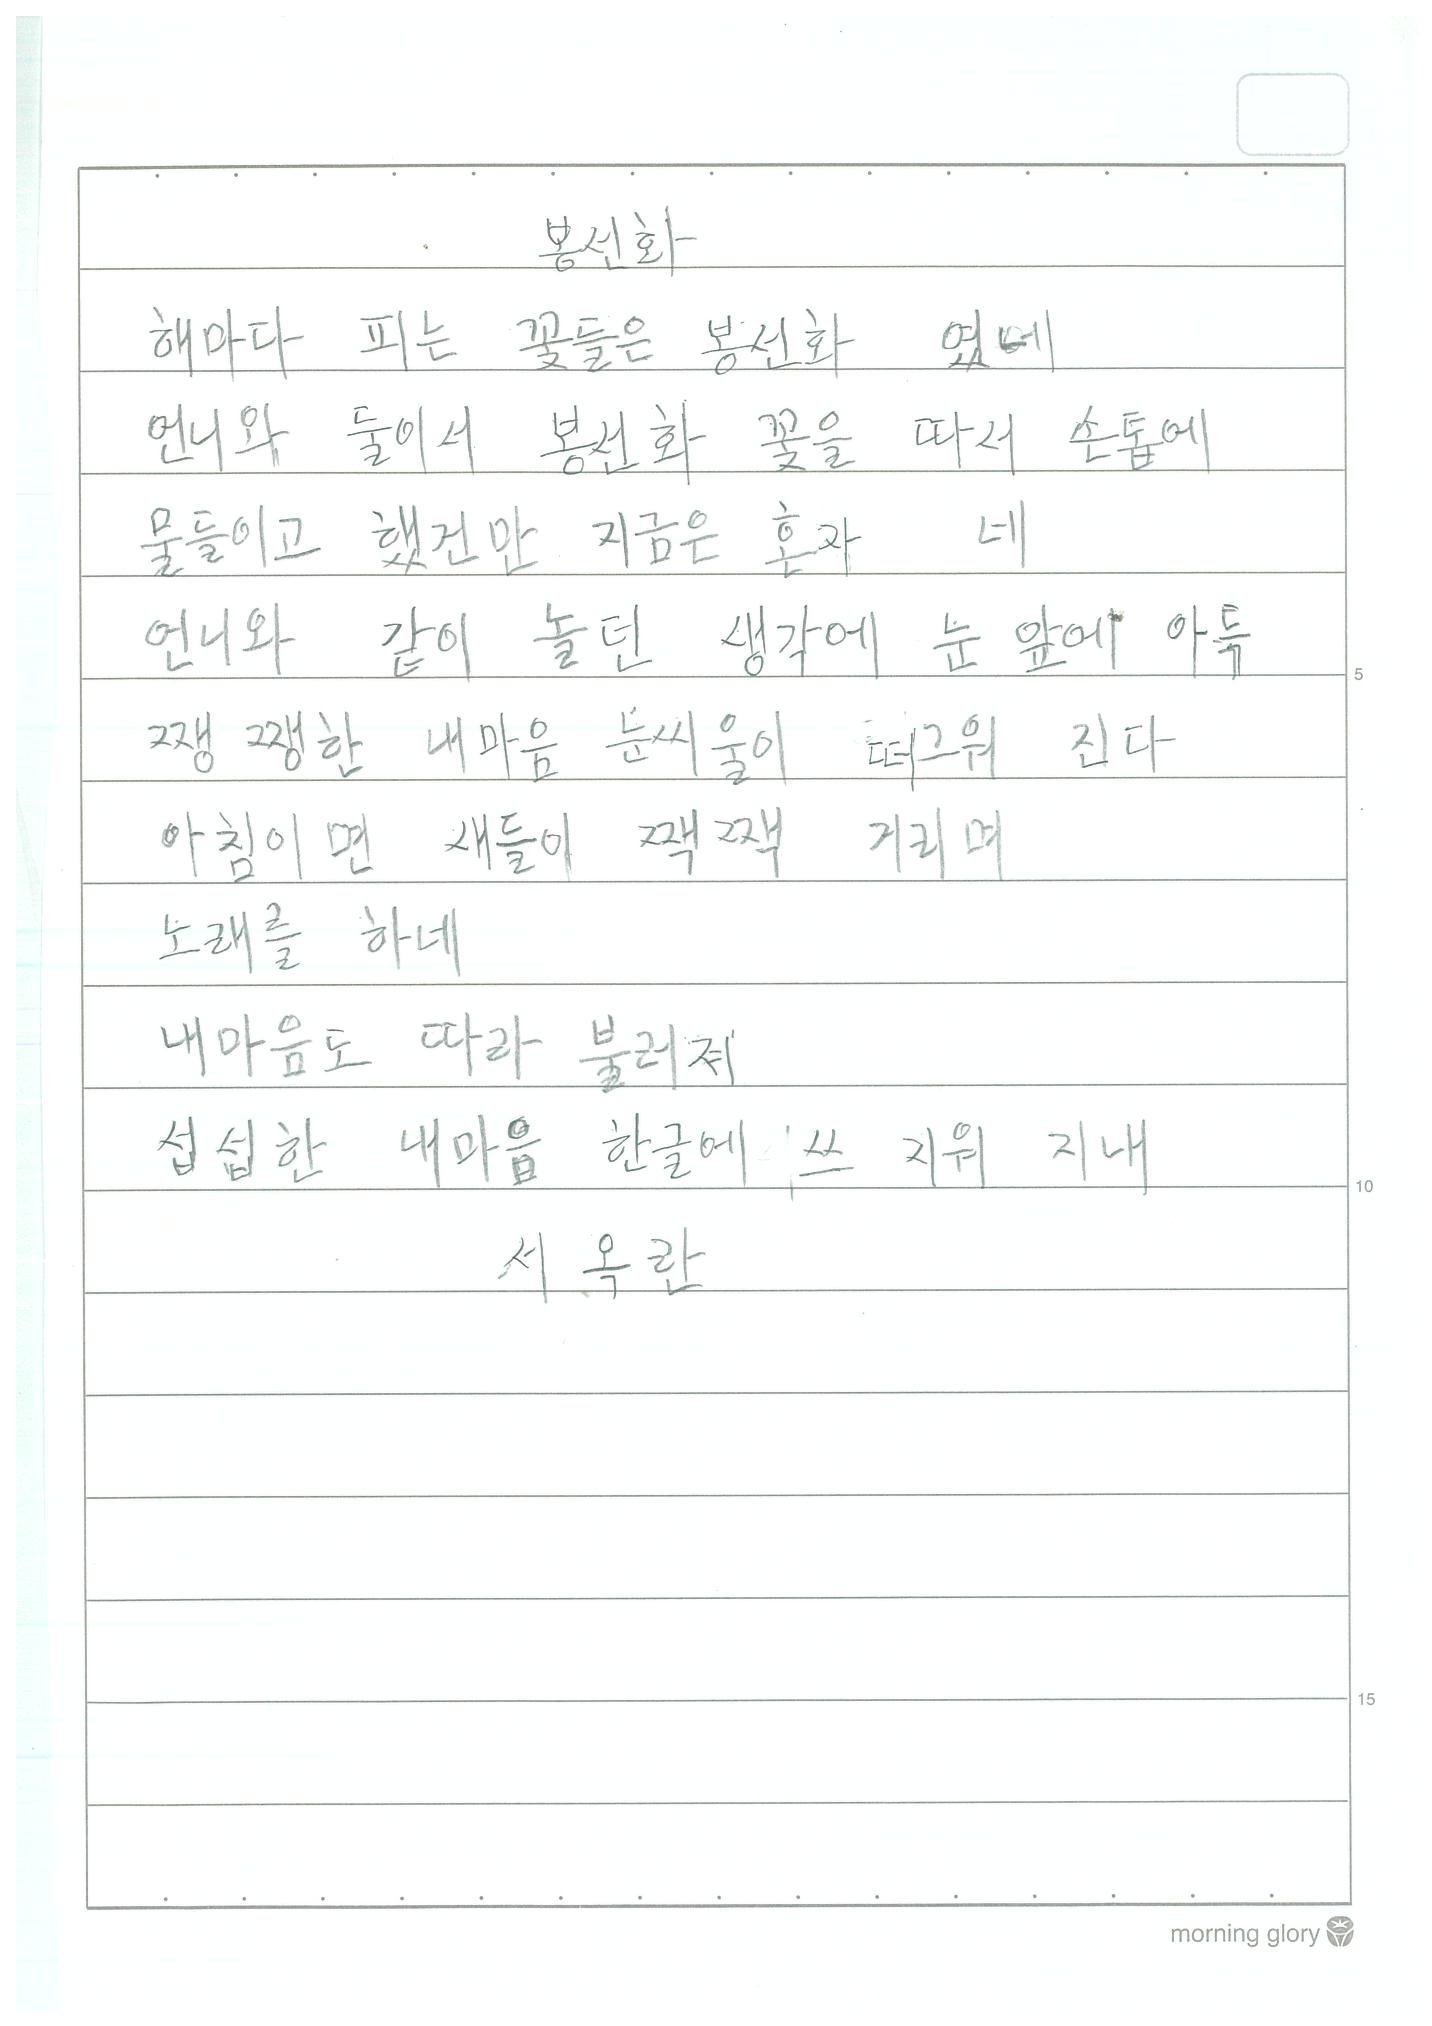 봉선화
해마다 피는 꽃들은 봉선화 였네
언니와 둘이서 봉선화 꽃을 따서 손톱에
물들이고 했건만 지금은 혼자 네
언니와 같이 놀던 생각에 눈 앞에 아득
5
쨍 쨍한 내마음 눈씨울이 떠그워 진다
아침이면 새들이 짹짹 거리며
노래를 하네
내마음도 따라 불러져
섭섭한 내마음 한글에 쓰 지워 지내
10
서 옥 란
15
morning glory